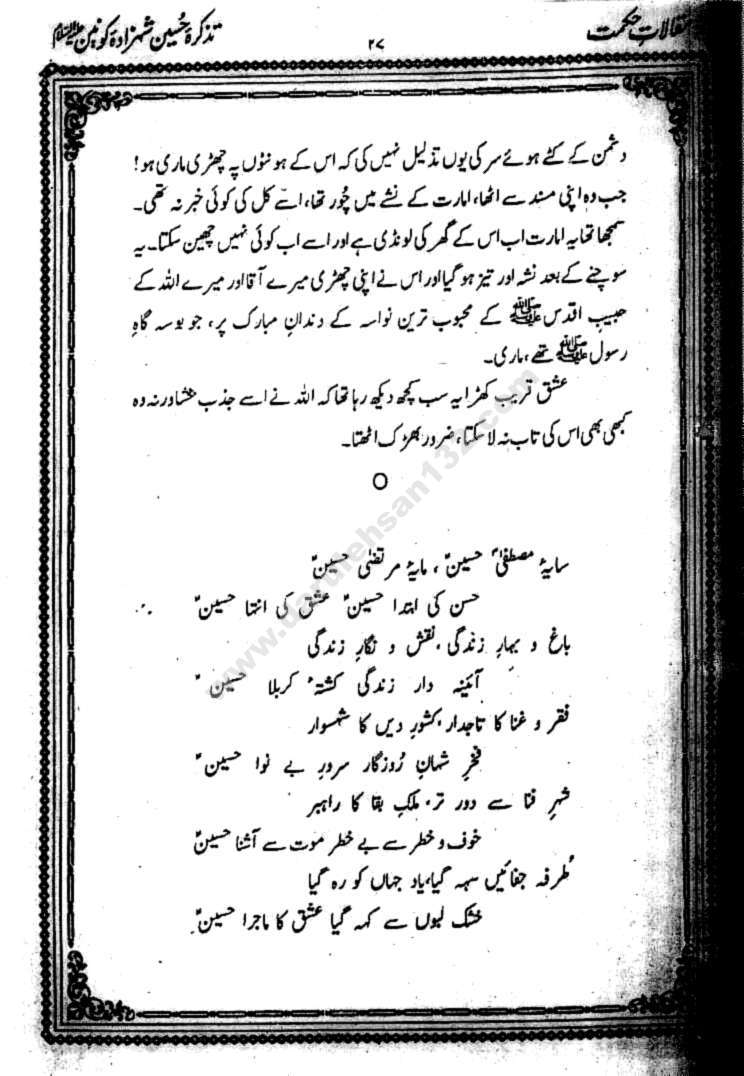 مقالاتِ حکمت ۲۷ تذکرۂ حُسین شہزادۂ کونین علیہ السلام
دشمن کے کٹے ہوئے سر کی یوں تذلیل نہیں کی کہ اس کے ہونٹوں پہ چھڑی ماری ہو!
جب وہ اپنی مسند سے اٹھا، امارت کے نشے میں چُور تھا، اسے کل کی کوئی خبر نہ تھی۔
سمجھا تھا یہ امارت اب اس کے گھر کی لونڈی ہے اور اسے اب کوئی نہیں چھین سکتا۔ یہ
سوچنے کے بعد نشہ اور تیز ہو گیا اور اس نے اپنی چھڑی میرے آقا اور میرے اللہ کے
حبیبِ اقدس ﷺ کے محبوب ترین نواسہ کے دندانِ مبارک پر، جو بوسہ گاہِ
رسول ﷺ تھے، ماری۔
عشق قریب کھڑا یہ سب کچھ دیکھ رہا تھا کہ اللہ نے اسے جذب بخشا ورنہ وہ
کبھی بھی اس کی تاب نہ لا سکتا، ضرور بھڑک اٹھتا۔
○
سایۂ مصطفیٰؐ حسینؑ، مایۂ مرتضیٰ حسینؑ
حسن کی ابتدا حسینؑ عشق کی انتہا حسینؑ
باغ و بہارِ زندگی، نقش و نگارِ زندگی
آئینہ دار زندگی کشتۂ کربلا حسینؑ
فقر و غنا کا تاجدار، کشورِ دیں کا شہسوار
فخرِ شہانِ رُوزگار سرورِ بے نوا حسینؑ
شہرِ فنا سے دور تر، ملکِ بقا کا راہبر
خوف و خطر سے بے خطر موت سے آشنا حسینؑ
طُرفہ جفائیں سہہ گیا، یاد جہاں کو رہ گیا
خشک لبوں سے کہہ گیا عشق کا ماجرا حسینؑ
www.darulehsan132.com